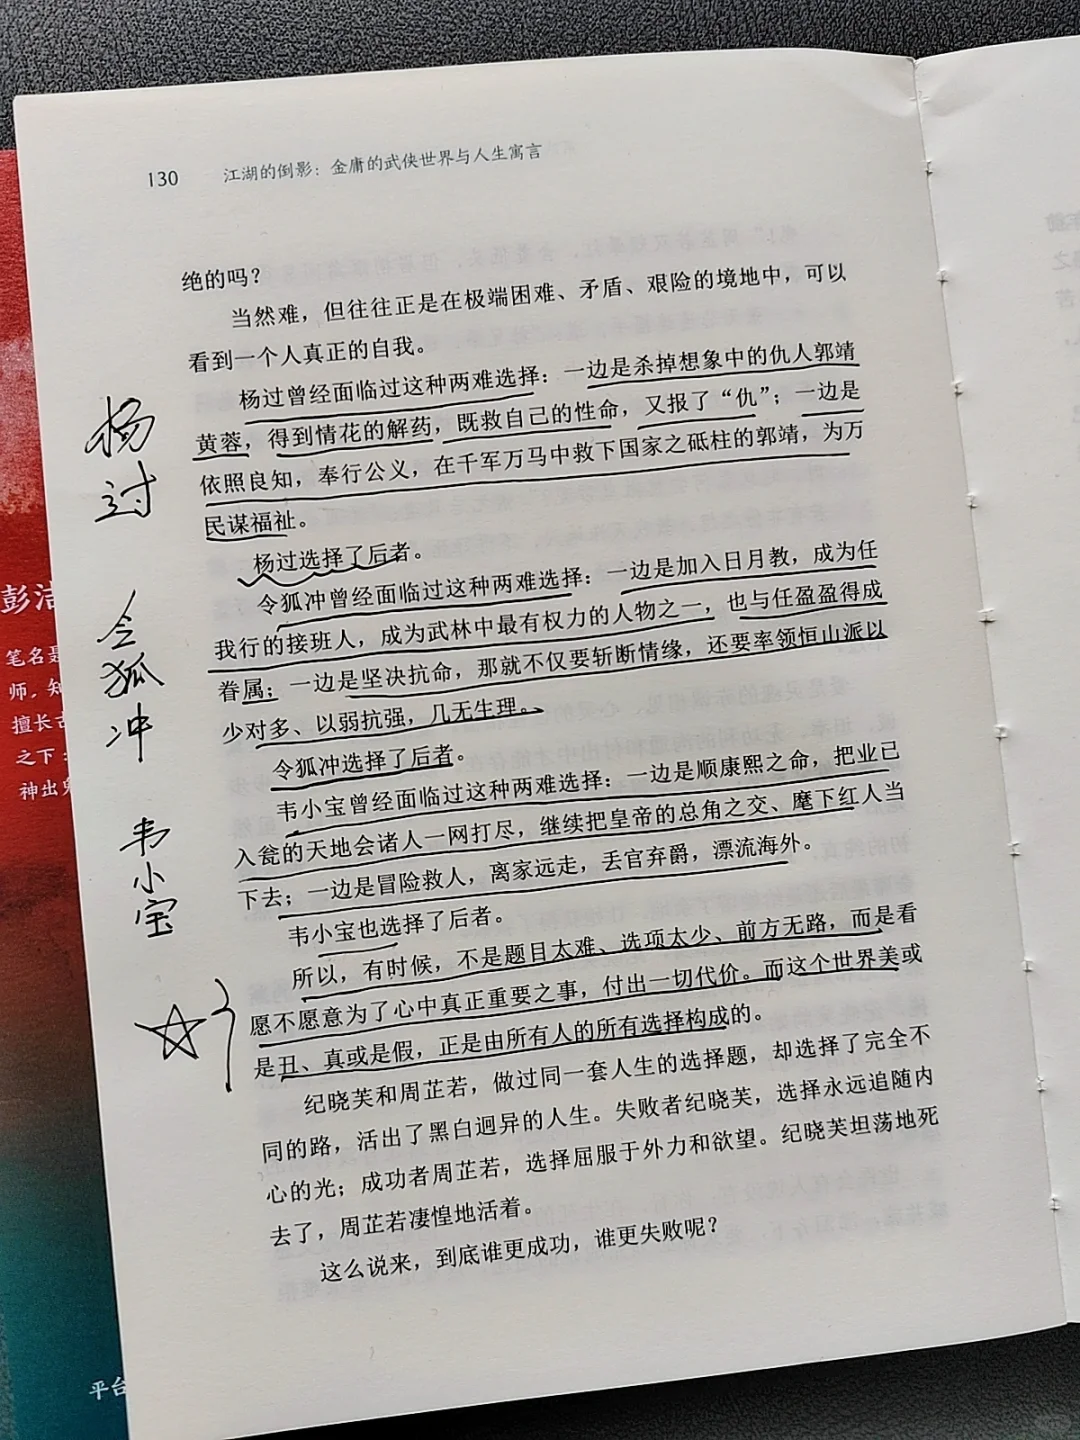 130 江湖的倒影：金庸的武侠世界与人生寓言
绝的吗？
当然难，但往往正是在极端困难、矛盾、艰险的境地中，可以
看到一个人真正的自我。
杨过曾经面临过这种两难选择：一边是杀掉想象中的仇人郭靖
黄蓉，得到情花的解药，既救自己的性命，又报了“仇”；一边是
依照良知，奉行公义，在千军万马中救下国家之砥柱的郭靖，为万
民谋福祉。
杨过选择了后者。
令狐冲曾经面临过这种两难选择：一边是加入日月教，成为任
我行的接班人，成为武林中最有权力的人物之一，也与任盈盈得成
眷属；一边是坚决抗命，那就不仅要斩断情缘，还要率领恒山派以
少对多、以弱抗强，几无生理。
令狐冲选择了后者。
韦小宝曾经面临过这种两难选择：一边是顺康熙之命，把业已
入瓮的天地会诸人一网打尽，继续把皇帝的总角之交、麾下红人当
下去；一边是冒险救人，离家远走，丢官弃爵，漂流海外。
韦小宝也选择了后者。
所以，有时候，不是题目太难、选项太少、前方无路，而是看
愿不愿意为了心中真正重要之事，付出一切代价。而这个世界美或
是丑、真或是假，正是由所有人的所有选择构成的。
纪晓芙和周芷若，做过同一套人生的选择题，却选择了完全不
同的路，活出了黑白迥异的人生。失败者纪晓芙，选择永远追随内
心的光；成功者周芷若，选择屈服于外力和欲望。纪晓芙坦荡地死
去了，周芷若凄惶地活着。
这么说来，到底谁更成功，谁更失败呢？
杨
过
令
狐
冲
韦
小
宝
彭洁
笔名是
师，知
擅长古
之下：
神出鬼
平台